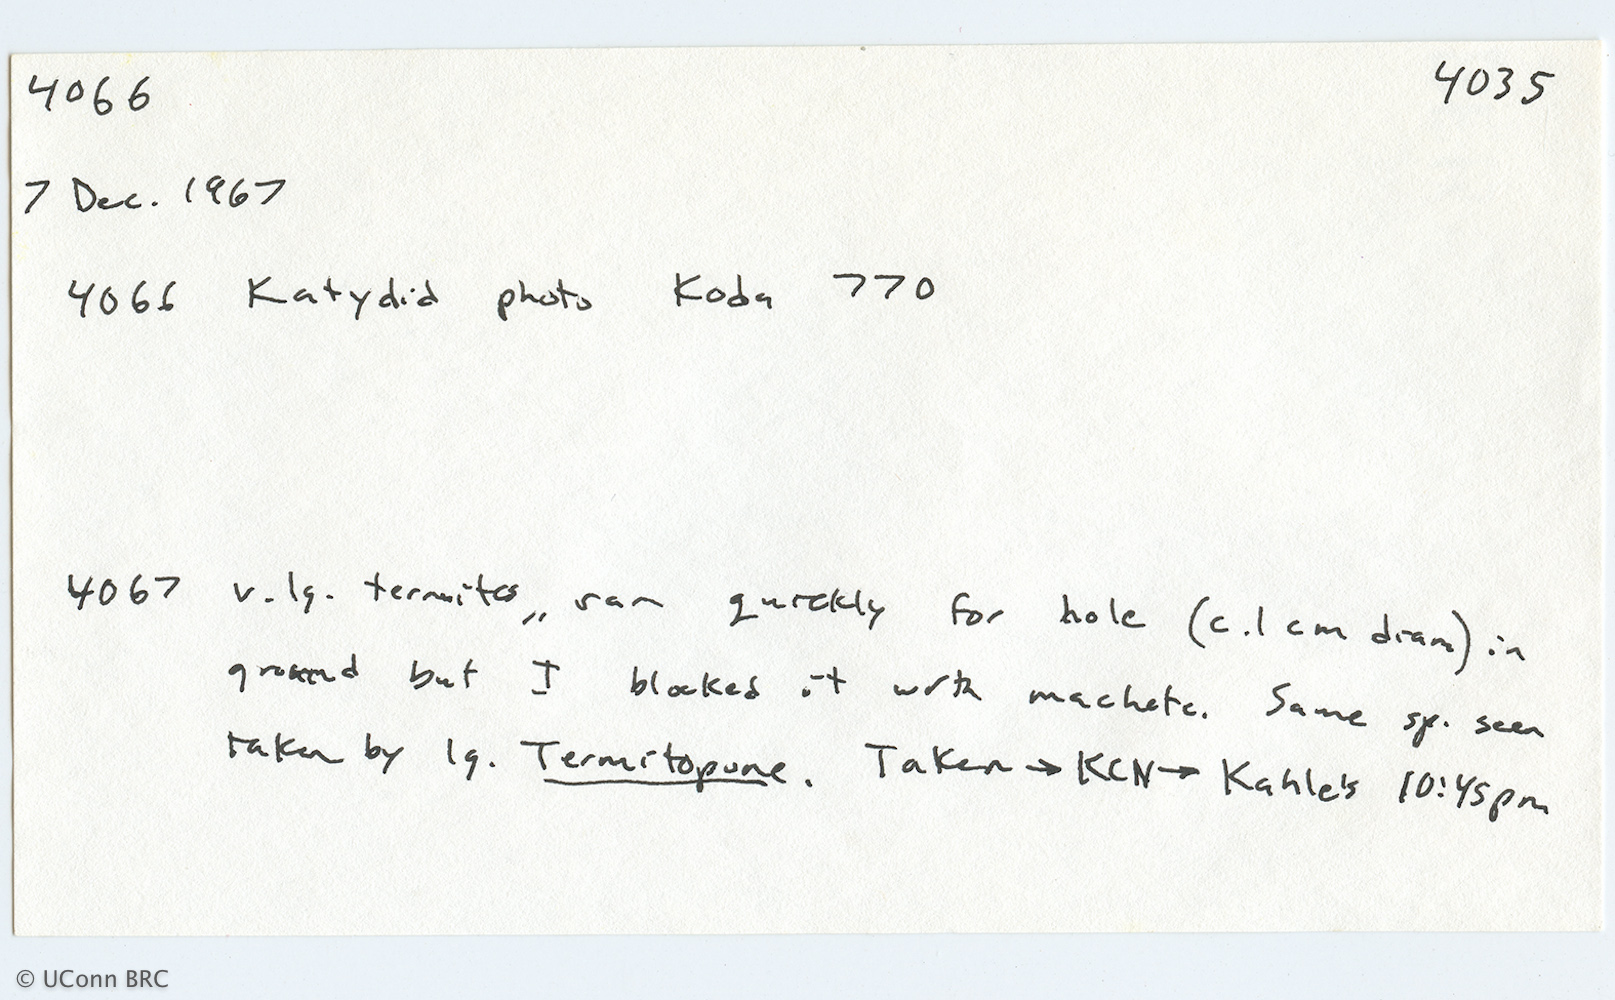 4066 4035
7 Dec. 1967
4066 Katydid photo Koda 770
4067 v. lg. termites,, ran quickly for hole (c. 1 cm diam) in
ground but I blocked it with machete. Same sp. seen
taken by lg. Termitopone. Taken → KCN → Kahle's 10:45pm
© UConn BRC